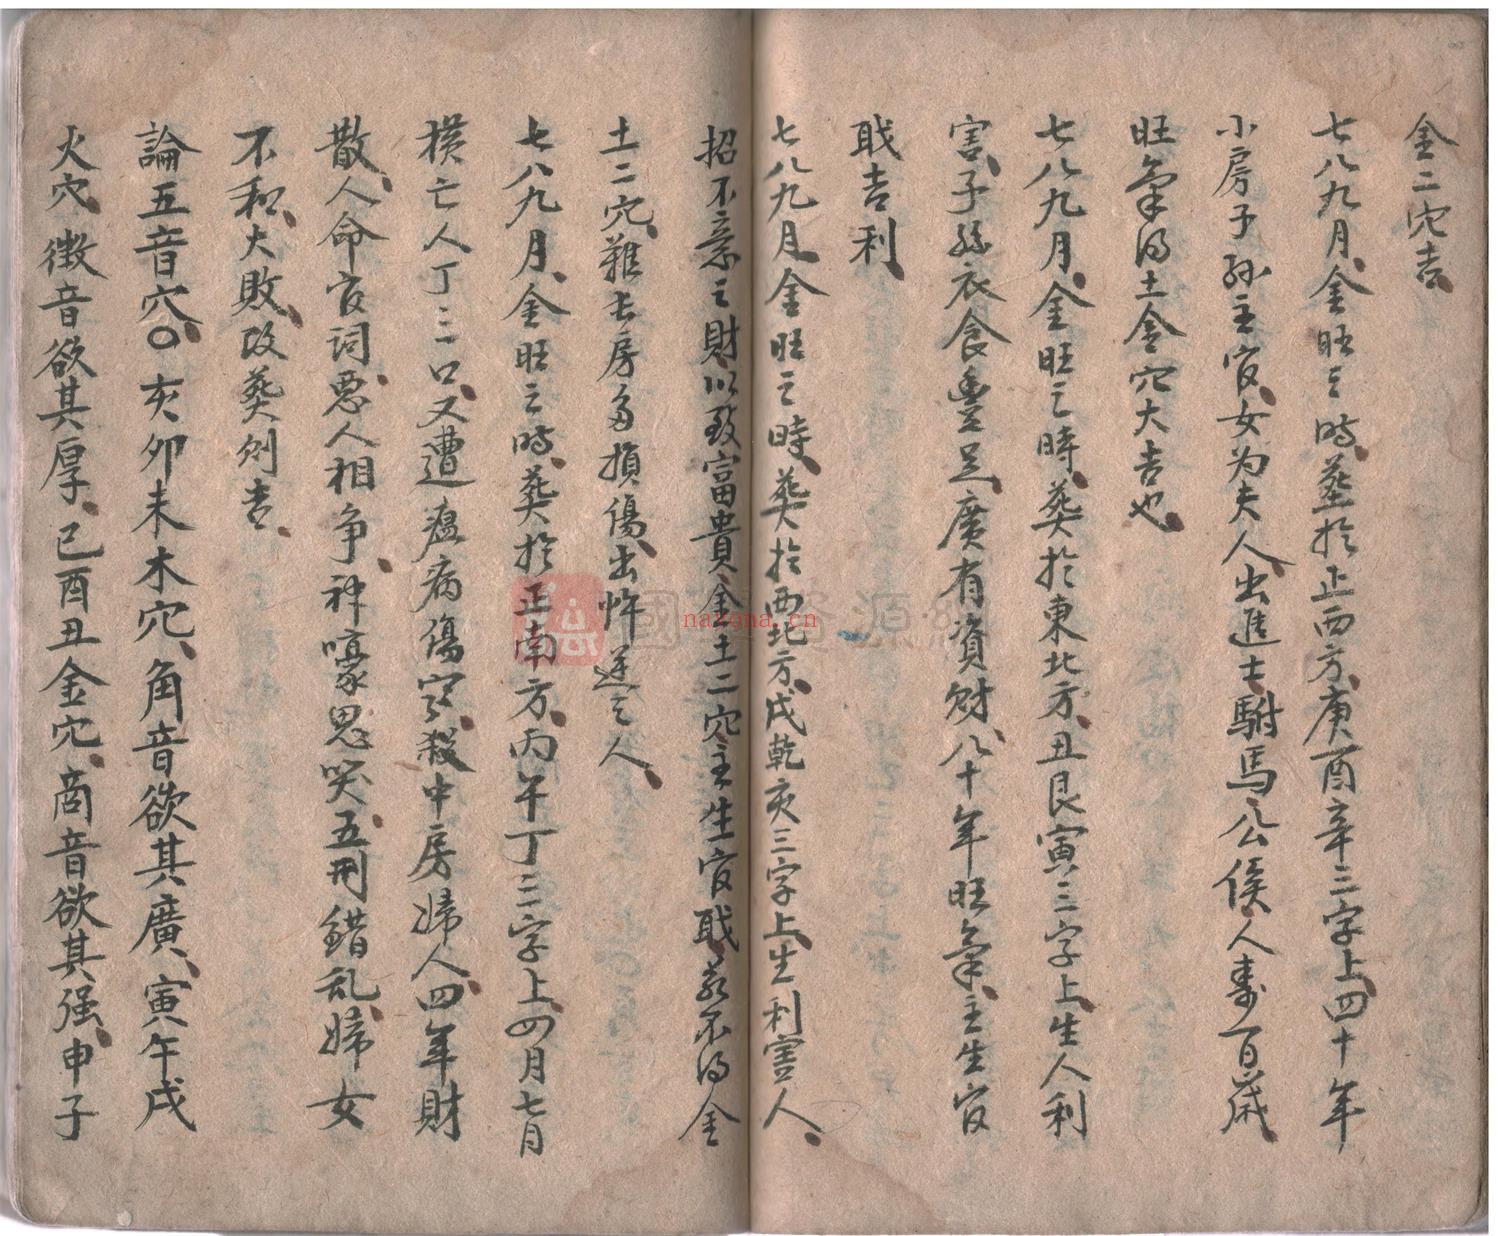 金二穴吉
七八九月金旺之時葬於正西方庚酉辛三字上四十年
小房子孫主官女为夫人出進士駙馬公侯人寿百歲
旺氣得土金穴大吉也
七八九月金旺之時葬於東北方丑艮寅三字上生人利
害子孫衣食豊足廣有資財八十年旺氣主生官
戢吉利
七八九月金旺之時葬於西北方戌乾亥三字上生利害人
招不意之財以致富貴金土二穴主生官戢若不得金
土二穴难長房多損傷出忤逆之人
七八九月金旺之時葬於正南方丙午丁三字上四月七月
横亡人丁三口又遭瘟病傷家殺中房婦人四年財
散人命官詞惡人相争神嚎鬼哭五刑錯乱婦女
不和大敗改葬則吉
論五音穴〇亥卯未木穴角音欲其廣寅午戌
火穴徵音欲其厚巳酉丑金穴商音欲其强申子
國學資源網
naxona.cn